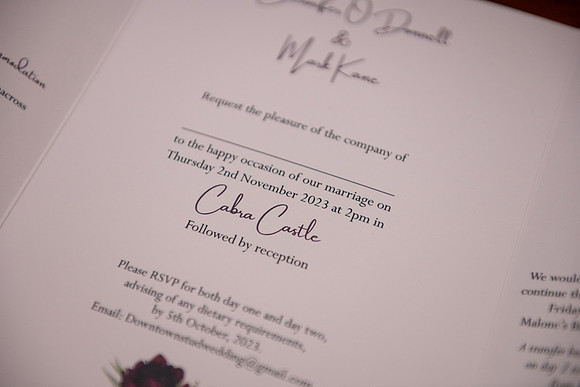 modation
across
Jennifer O'Donnell
&
Mark Kane
Request the pleasure of the company of
to the happy occasion of our marriage on
Thursday 2nd November 2023 at 2pm in
Cabra Castle
Followed by reception
Please RSVP for both day one and day two,
advising of any dietary requirements,
by 5th October, 2023.
Email: Downtownstudwedding@gmail.com
We would
continue th
Friday
Malone's B
A transfer bu
on day 2